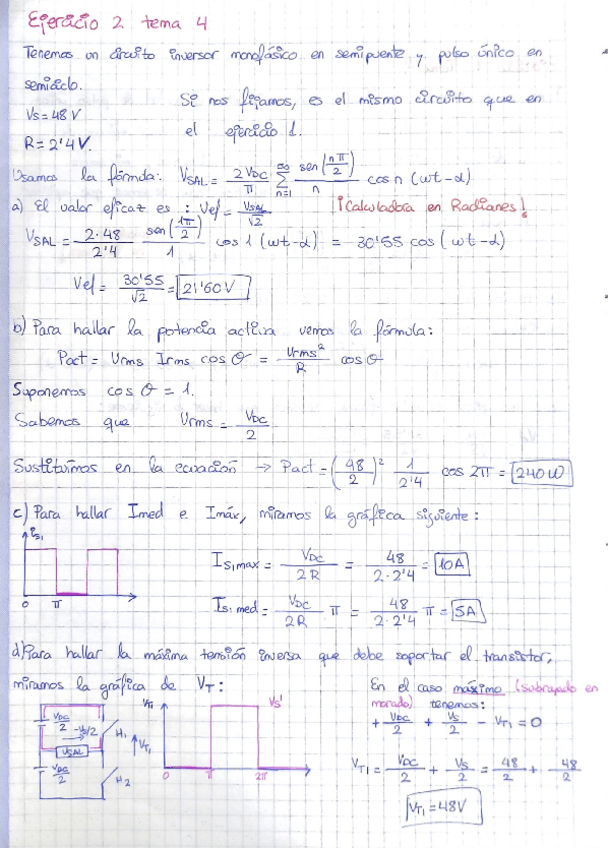 Ejercicio 2 tema 4
Tenemos un circuito inversor monofásico en semipuente y pulso único en
semiciclo.
Vs = 48 V
R = 2'4 V.
Si nos fijamos, es el mismo circuito que en
el ejercicio 1.
Usamos la fórmula: V_SAL = 2V_DC/π ∑_{n=1}^{∞} sen(nπ/2)/n cos n (ωt-α)
a) El valor eficaz es : Vef = V_SAL/√2
¡¡Calculadora en Radianes!
V_SAL = 2·48/2'4 sen(1π/2)/1 cos 1 (ωt-α) = 30'55 cos (ωt-α)
Vef = 30'55/√2 = 21'60 V
b) Para hallar la potencia activa vemos la fórmula:
Pact = Urms Irms cos θ = Urms²/R cos θ
Suponemos cos θ = 1.
Sabemos que Urms = V_DC/2
Sustituimos en la ecuación → Pact = (48/2)² 1/2'4 cos 2π = 240 W
c) Para hallar Imed e Imáx, miramos la gráfica siguiente:
i_S1
0 π
I_S1 max = V_DC/2R = 48/2·2'4 = 10A
I_S1 med = V_DC/2R π = 48/2·2'4 π = 5A
d) Para hallar la máxima tensión inversa que debe soportar el transistor,
miramos la gráfica de V_T:
V_DC/2
-Vs/2
V_SAL
V_DC/2
H1
V_T1
H2
Vs'
0 π 2π
En el caso máximo (subrayado en
morado) tenemos:
+ V_DC/2 + Vs/2 - V_T1 = 0
V_T1 = V_DC/2 + Vs/2 = 48/2 + 48/2
V_T1 = 48V